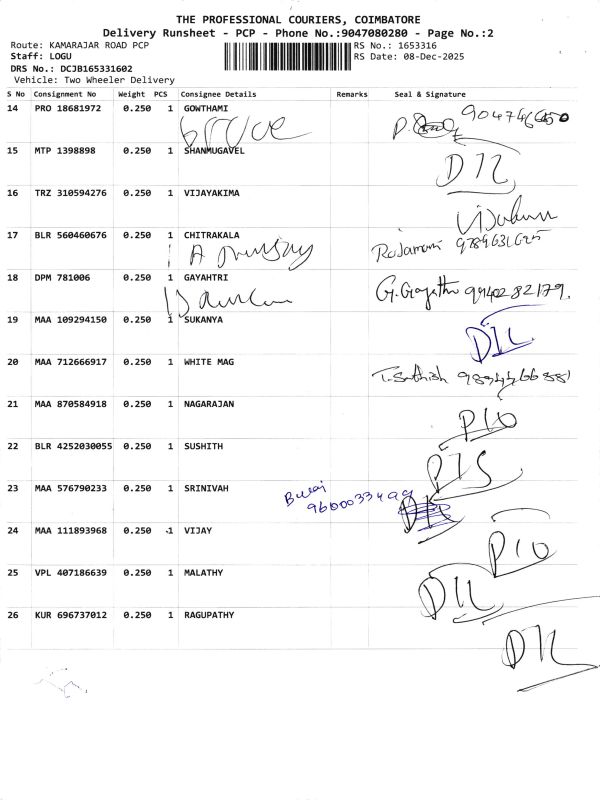 THE PROFESSIONAL COURIERS, COIMBATORE
Delivery Runsheet - PCP - Phone No.:9047080280 - Page No.:2
Route: KAMARAJAR ROAD PCP
RS No.: 1653316
Staff: LOGU
RS Date: 08-Dec-2025
DRS No.: DCJB165331602
Vehicle: Two Wheeler Delivery
S No Consignment No Weight PCS Consignee Details Remarks Seal & Signature
14 PRO 18681972 0.250 1 GOWTHAMI
15 MTP 1398898 0.250 1 SHANMUGAVEL
16 TRZ 310594276 0.250 1 VIJAYAKIMA
17 BLR 560460676 0.250 1 CHITRAKALA
18 DPM 781006 0.250 1 GAYAHTRI G.Gayathri 9940282179.
19 MAA 109294150 0.250 1 SUKANYA DIL
20 MAA 712666917 0.250 1 WHITE MAG T.Sathish
21 MAA 870584918 0.250 1 NAGARAJAN
22 BLR 4252030055 1 SUSHITH
23 MAA 576790233 0.250 1 SRINIVAH 9600033499
24 MAA 111893968 0.250 1 VIJAY
25 VPL 407186639 0.250 1 MALATHY
26 KUR 696737012 0.250 1 RAGUPATHY